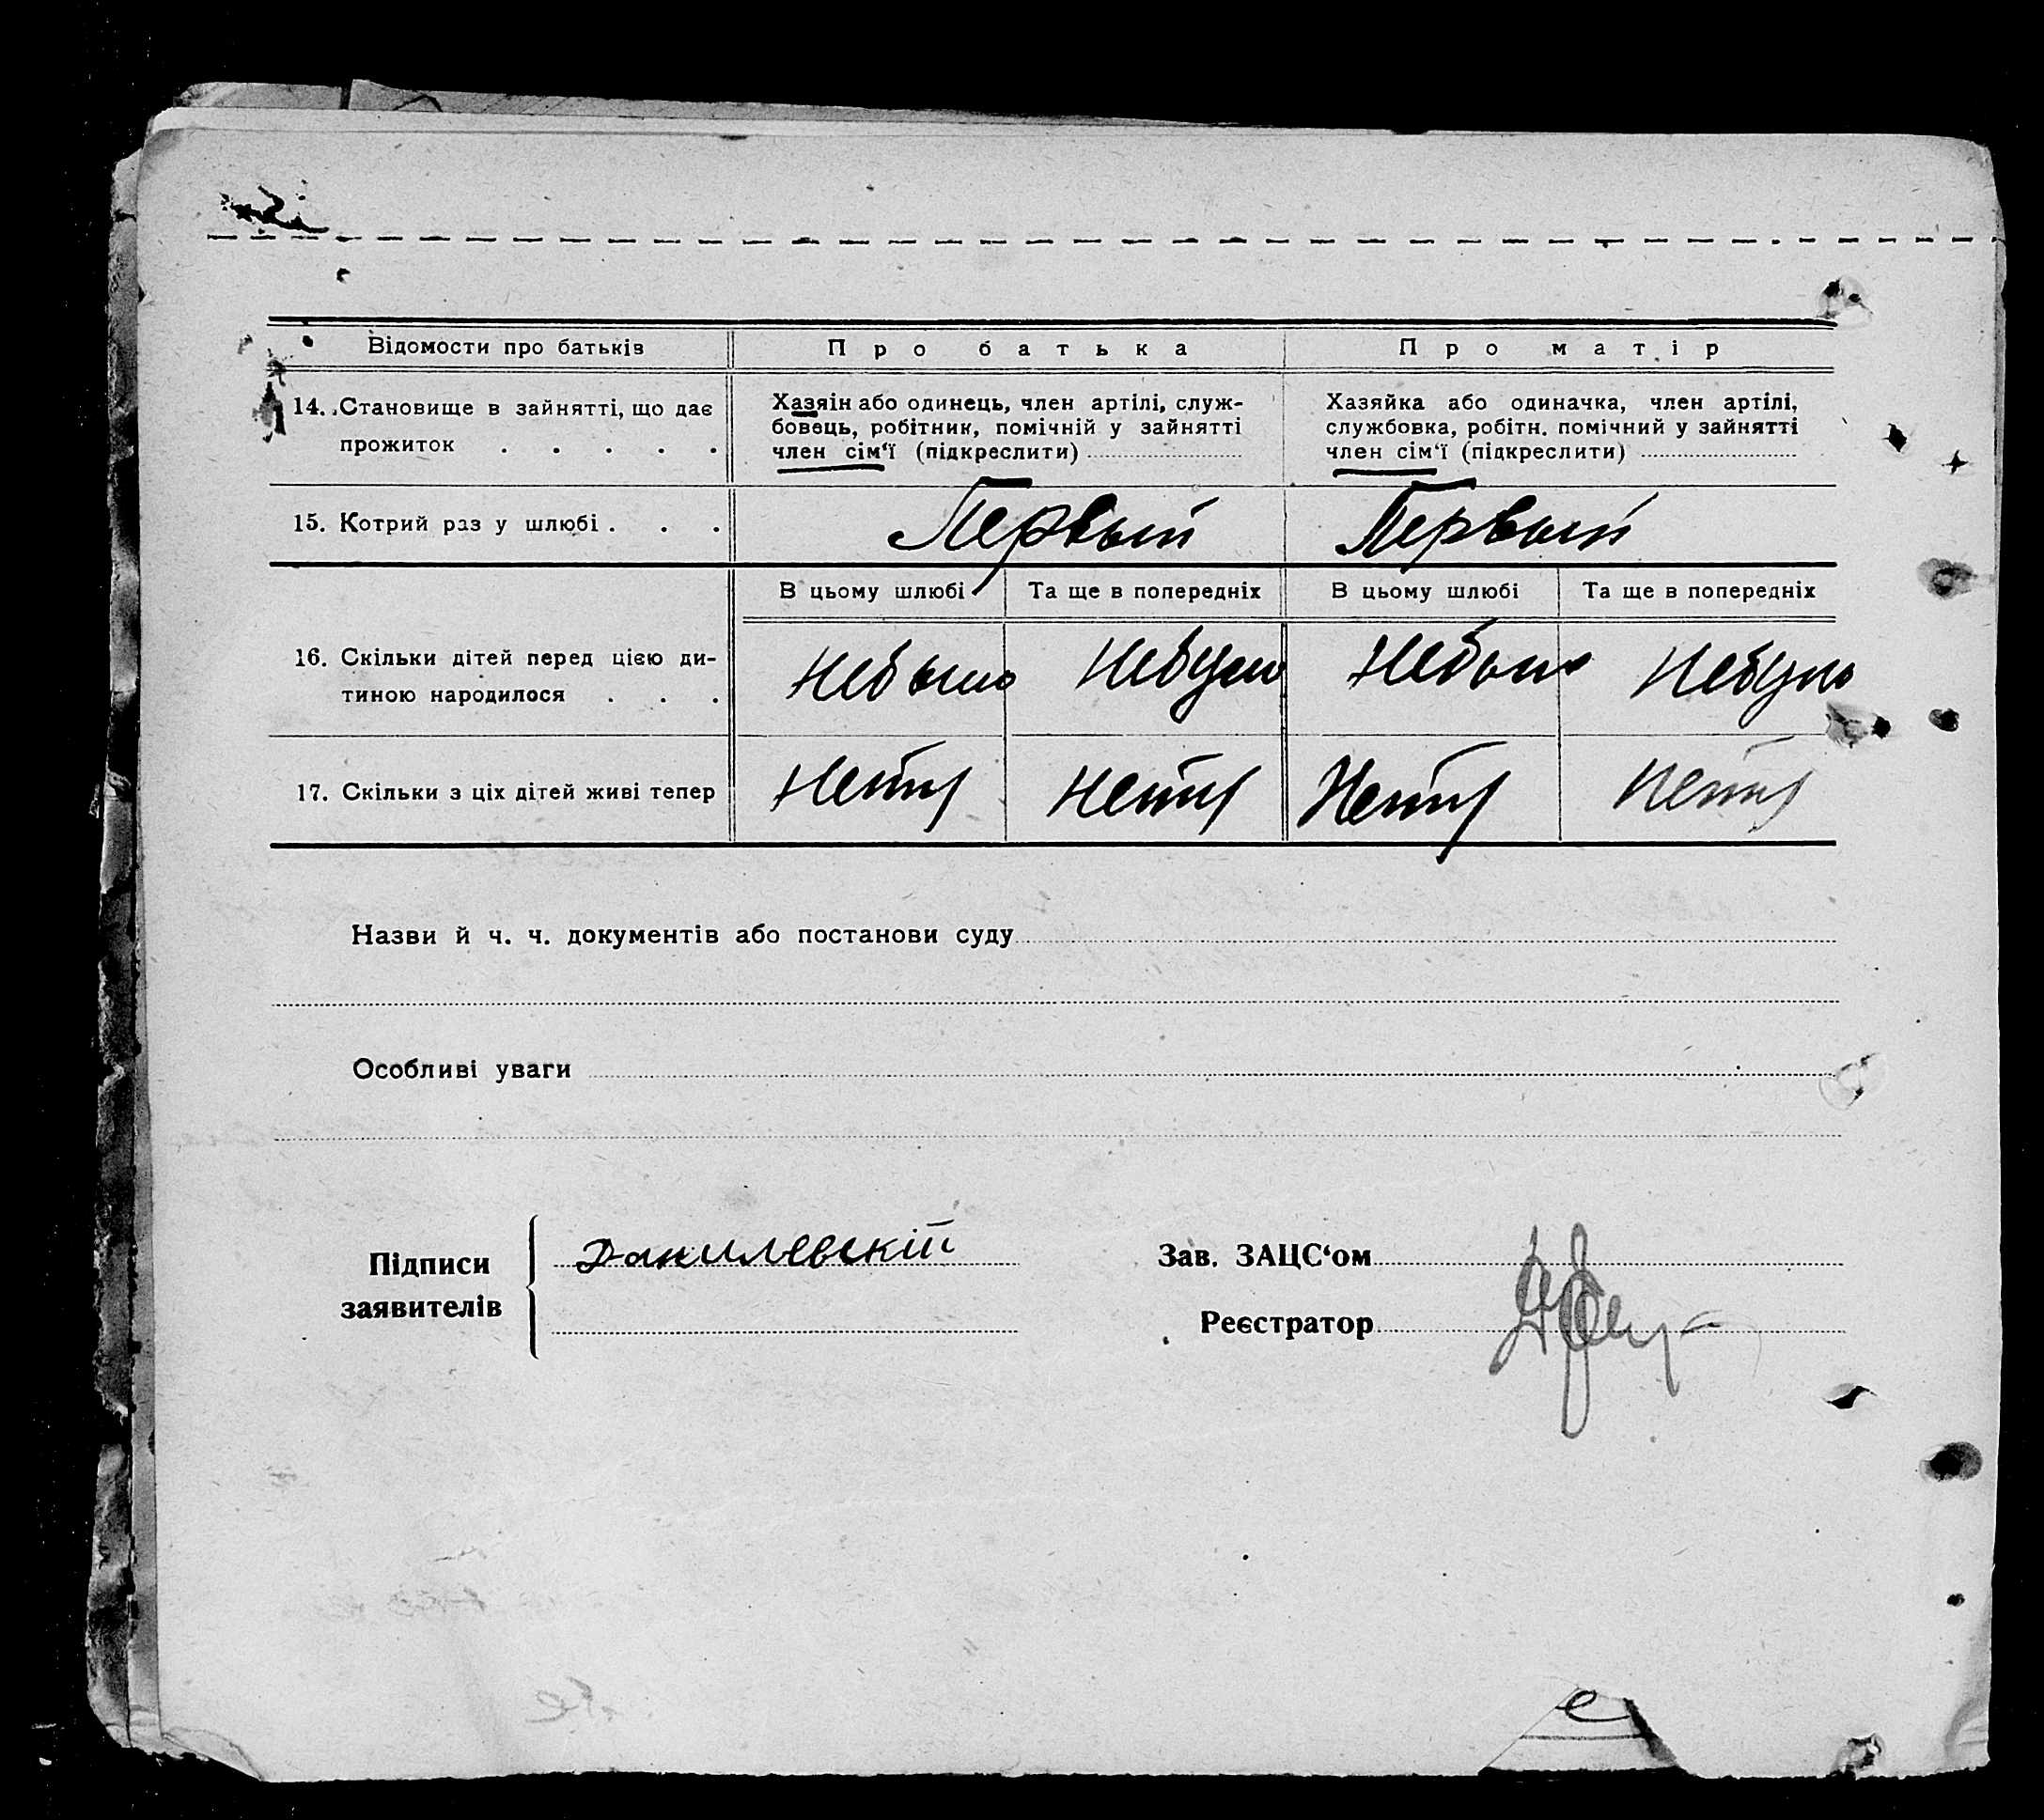 Відомости про батьків
Про батька
Про матір
14. Становище в зайнятті, що дає
прожиток . . . . .
Хазяїн або одинець, член артілі, служ-
бовець, робітник, помічній у зайнятті
член сім‘ї (підкреслити)
Хазяйка або одиначка, член артілі,
службовка, робітн. помічний у зайнятті
член сім‘ї (підкреслити)
15. Котрий раз у шлюбі . . .
Первый
Первый
В цьому шлюбі
Та ще в попередніх
В цьому шлюбі
Та ще в попередніх
16. Скільки дітей перед цією ди-
тиною народилося . . .
Небыло
Небуло
Небыло
Небуло
17. Скільки з ціх дітей живі тепер
Нету
Нету
Нету
Нету
Назви й ч. ч. документів або постанови суду
Особливі уваги
Підписи
заявителів
Данилевскій
Зав. ЗАЦС‘ом
Реєстратор